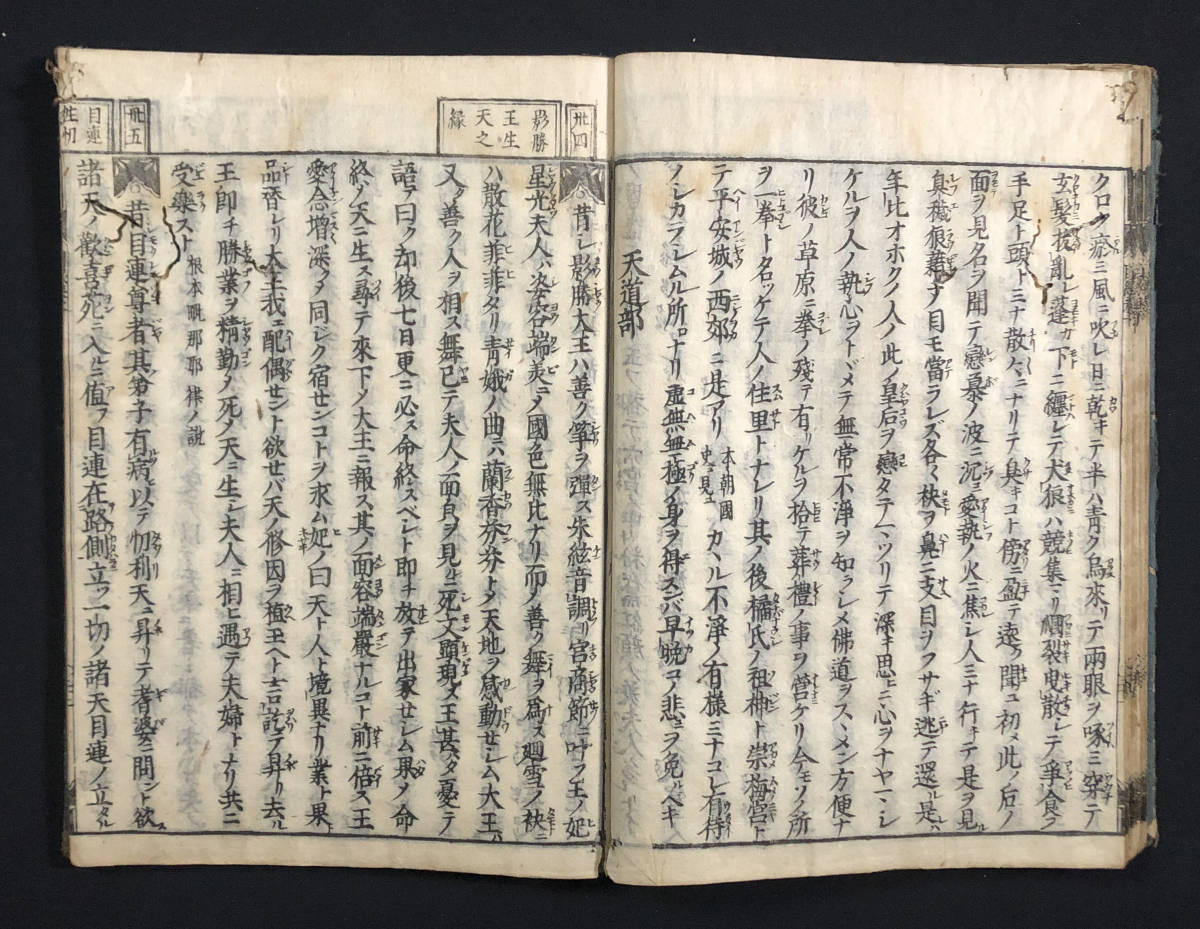 クロク瘀ミ風ニ吹レ日ニ乾キテ半ハ青ク烏來リテ兩眼ヲ啄ミ穿テ
玄髮抜亂レ蓬カ下ニ纏レテ犬狼ハ競集リ爛裂曳散シテ爭食フ
手足ト頭トミナ散々ニナリテ臭キコト傍ニ盈テ遠ク聞ユ初メ此ノ后ノ
面ヲ見名ヲ聞テ戀慕ノ波ニ沉ミ愛執ノ火ニ焦レ人ミナ行キテ是ヲ見ル
臭穢狼藉ナ目モ當ラレズ各〱袂ヲ鼻ニ支目ヲフサギ逃テ還ル是レハ
年比オホクノ人ノ此ノ皇后ヲ戀タテマツリテ深キ思ヒニ心ヲナヤマシ
ケルヲ人ノ執心ヲトヾメテ無常不淨ヲ知ラシメ佛道ヲスヽメン方便ナ
リ彼ノ草原ニ拳ノ殘テ有リケルヲ拾テ葬禮ノ事ヲ營ケリ今モソノ所
ヲ一拳ト名ツケテ人ノ住里トナレリ其ノ後橘氏ノ祖神ト崇梅宮ト
テ平安城ノ西郊ニ是アリ 本朝國史ニ見ユ カヽル不淨ノ有様ミナコレ有待
ノシカラシムル所ロナリ虚無無極ノ身ヲ得スンバ早晩カコノ悲ヲ免ルベキ
天道部
卅四
影勝王生天之縁
昔シ影勝大王ハ善ク箏ヲ彈ス朱絃音調リ宮商節ニ叶フ王ノ妃
星光夫人ハ姿容端美ニメ國色無比ナリ而メ善ク舞ヲ爲ス廻雪ノ袂ニ
ハ散花菲菲タリ青娥ノ曲ニハ蘭香芬芬トメ天地ヲ感動セシム大王ハ
又タ善ク人ヲ相ス舞已テ夫人ノ面色ヲ見ルニ死文頭現ス王甚ハタ憂テ
語テ曰ク却後七日更ニ必ス命終スベシト即チ放テ出家セシム果メ命
終メ天ニ生ス尋テ來下メ大王ニ報ス其ノ面容端嚴ナルコト前ニ倍ス王
愛念増深メ同ジク宿センコトヲ求ム妃ノ曰天ト人ト境異ナリ業ト果ト
品替レリ大王我ニ配偶セント欲セバ天ノ修因ヲ植玉ヘト言訖テ昇リ去ル
王即チ勝業ヲ精勤メ死メ天ニ生シ夫人ニ相ヒ遇テ夫婦トナリ共ニ
受樂スト 根本毗那耶律ノ説
卅五
目連
昔目連尊者其ノ弟子有病ヲ以テ忉利天ニ昇リテ耆婆ニ問ント欲ス
諸天ノ歡喜死ニ入ルニ値フ目連在路側立ツ一切ノ諸天目連ノ立タル